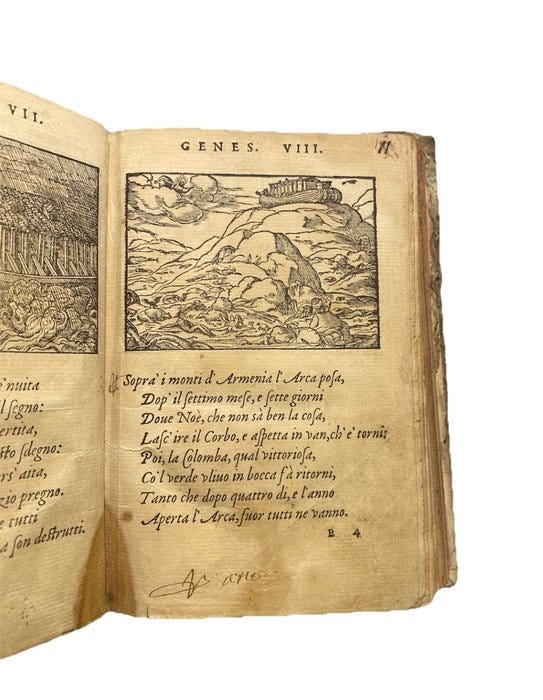 VII.
è nuita
l segno:
ertita,
sto sdegno:
ers' aita,
zio pregno.
e tutti
a son destrutti.
GENES. VIII.
11
Sopra' i monti d' Armenia l' Arca posa,
Dop' il settimo mese, e sette giorni
Doue Noè, che non sà ben la cosa,
Lasc' ire il Corbo, e aspetta in van, ch' e' torni:
Poi, la Colomba, qual vittoriosa,
Co'l verde vliuo in bocca fà ritorni,
Tanto che dopo quattro dì, e l' anno
Aperta l' Arca, fuor tutti ne vanno.
B 4